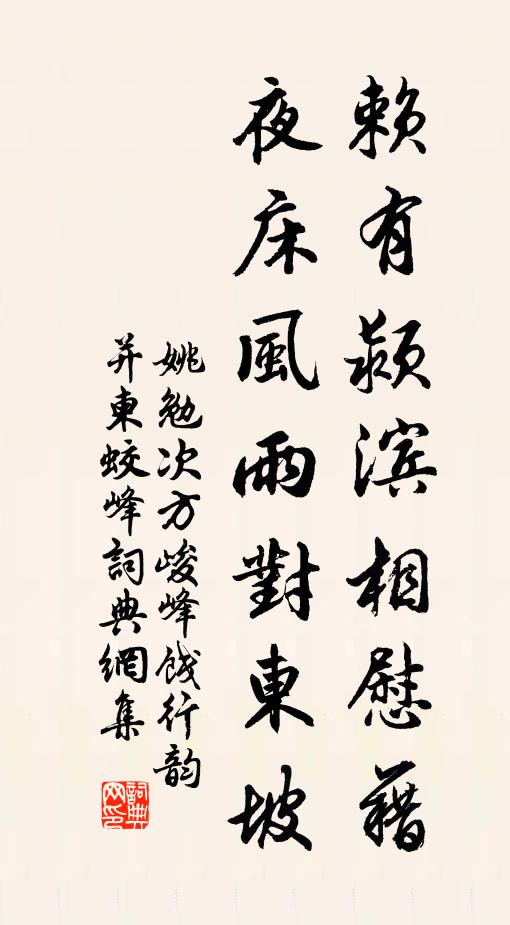 賴有潁滨相慰藉
夜床風雨對東坡
姚勉次方峻峰餞行韵
并東蛟峰詞典網集
詞典网印